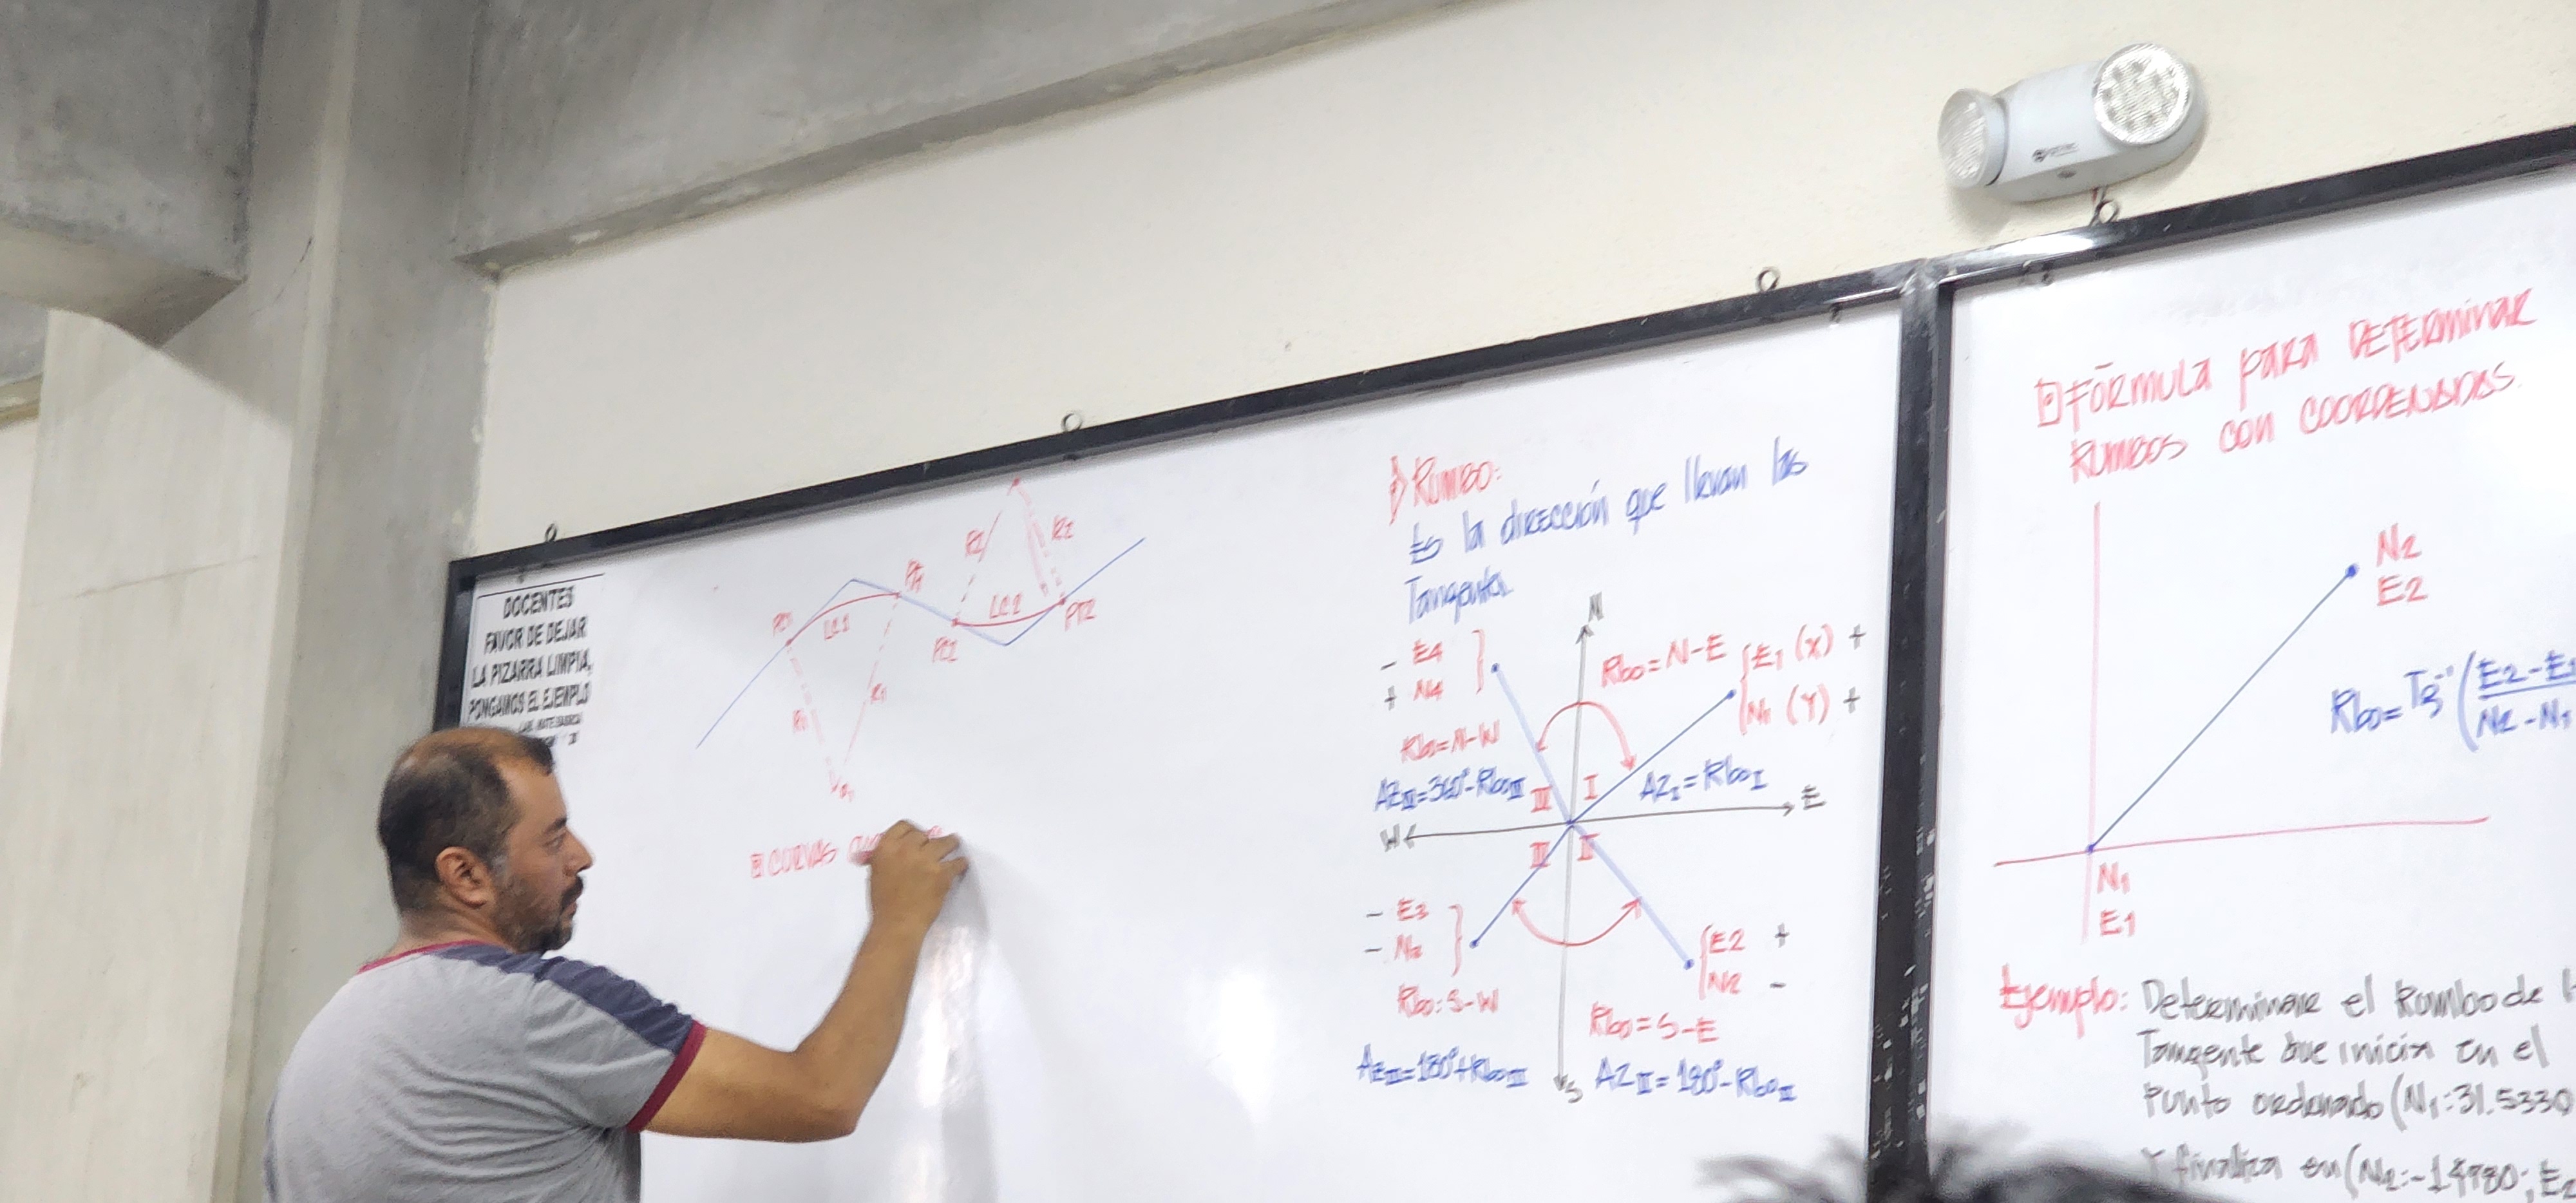 DOCENTES
FAVOR DE DEJAR
LA PIZARRA LIMPIA,
PONGAMOS EL EJEMPLO
PC1
LC1
PT1
R1
R1
PC2
LC2
PT2
R2
R2
CURVAS
Rumbo:
Es la dirección que llevan las
Tangentes.
N
- E4
+ N4
Rbo=N-W
Rbo=N-E
E1 (X) +
N1 (Y) +
I
AZI=RboI
E
W
- E3
-
Rbo=S-W
E2 +
N2 -
Rbo=S-E
AZIII=180°+RboIII
S
AZII=180°-RboII
FÓRMULA PARA DETERMINAR
RUMBOS CON COORDENADAS.
N2
E2
Rbo=Tg⁻¹(E2-E1
N2-N1
N1
E1
Ejemplo: Determinar el Rumbo de
Tangente que inicia en el
Punto ordenado (N1:31.5330
Y finaliza en (N2:-14780; E